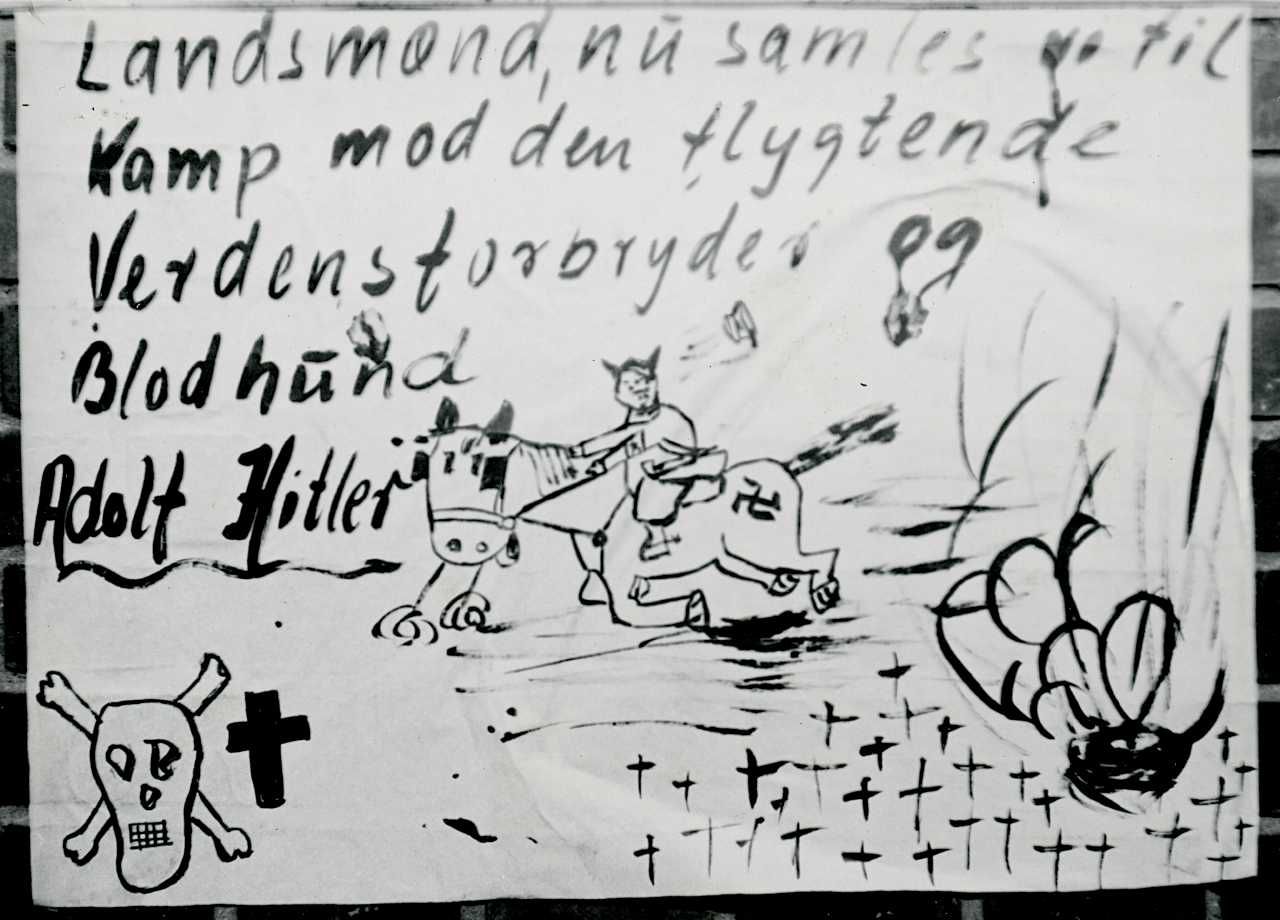 Landsmænd, nū samles vi til
Kamp mod den flygtende
Verdensforbryder og
Blodhūnd
Adolf Hitler